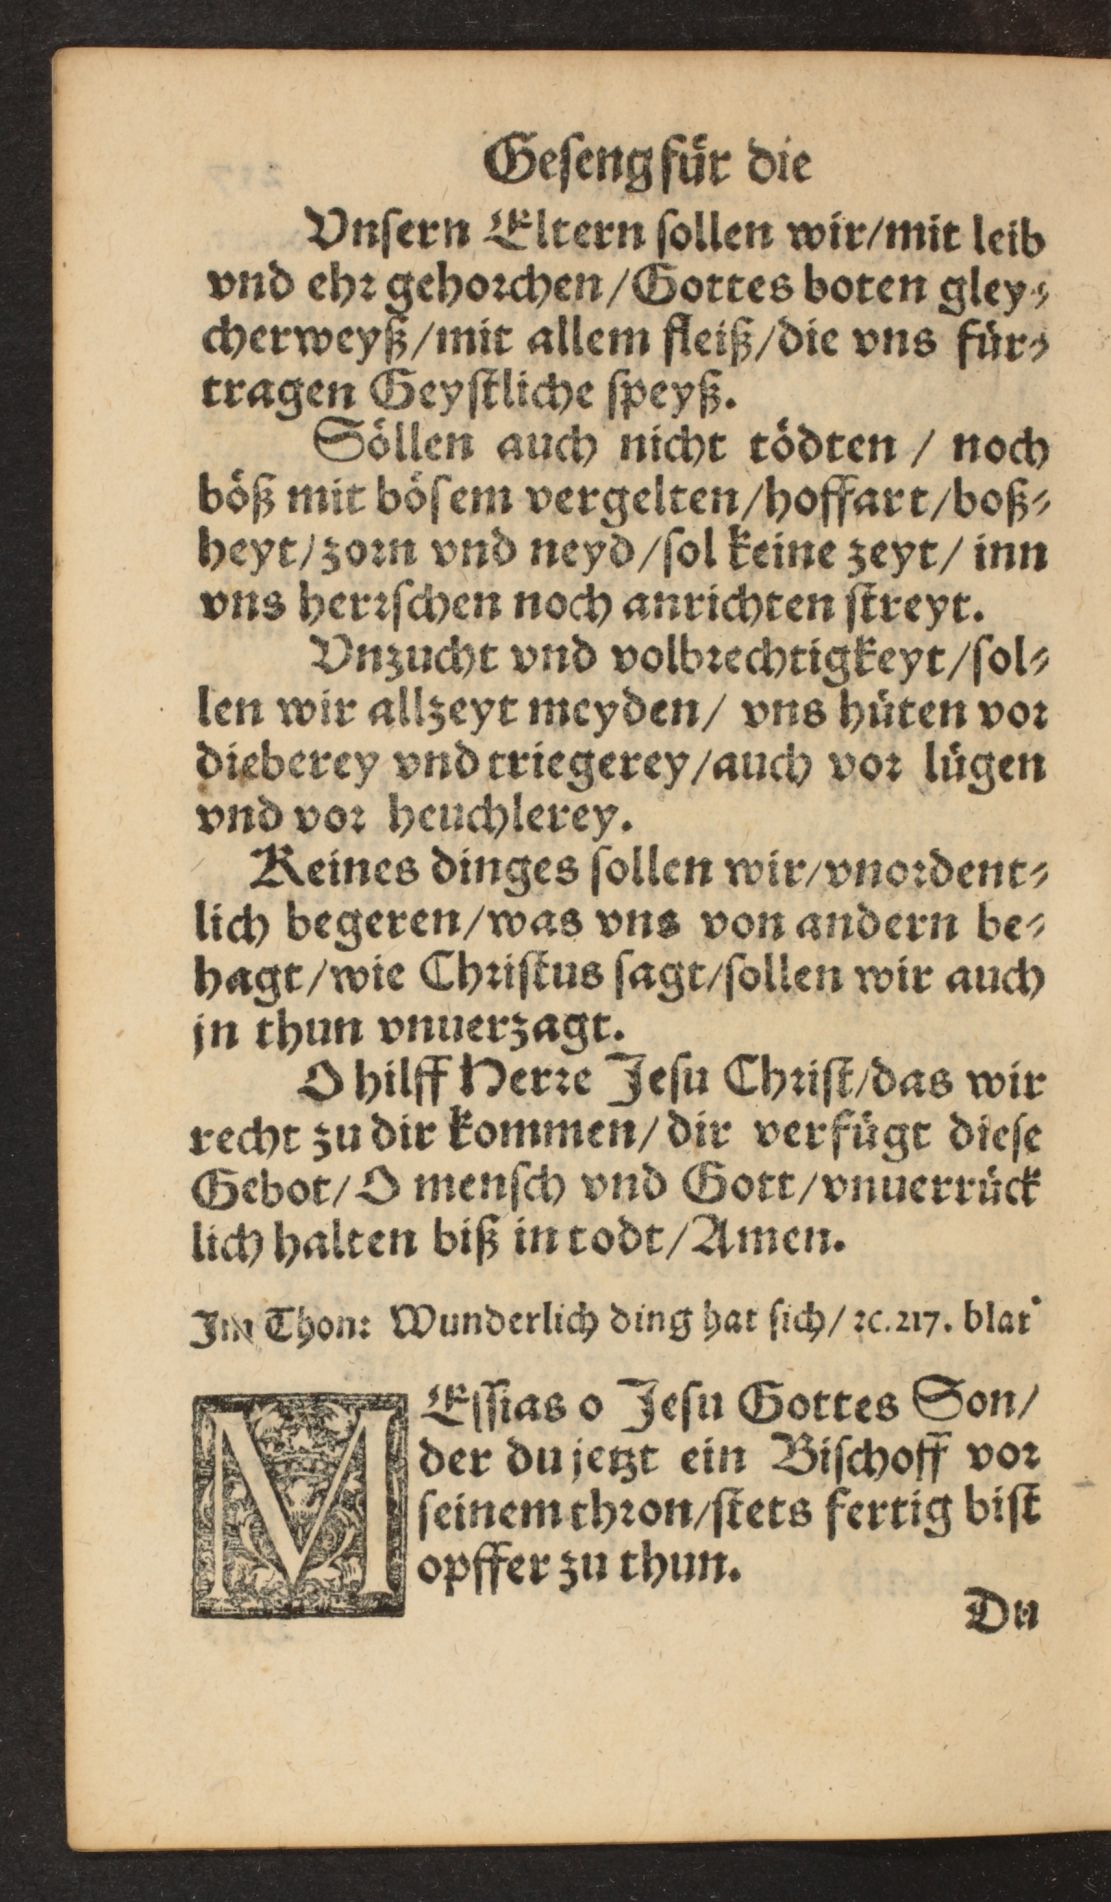 Geseng für die
Vnsern Eltern sollen wir/mit leib
vnd ehr gehorchen/Gottes boten gley⸗
cherweyß/mit allem fleiß/die vns für⸗
tragen Geystliche speyß.
Söllen auch nicht tödten / noch
böß mit bösem vergelten/hoffart/boß⸗
heyt/zorn vnd neyd/sol keine zeyt/ inn
vns herrschen noch anrichten streyt.
Vnzucht vnd volbrechtigkeyt/sol⸗
len wir allzeyt meyden/ vns hüten vor
dieberey vnd triegerey/auch vor lügen
vnd vor heuchlerey.
Keines dinges sollen wir/vnordent⸗
lich begeren/was vns von andern be⸗
hagt/wie Christus sagt/sollen wir auch
jn thun vnuerzagt.
O hilff Herre Jesu Christ/das wir
recht zu dir kommen/dir verfügt diese
Gebot/O mensch vnd Gott/vnuerrück
lich halten biß in todt/Amen.
Im Thon: Wunderlich ding hat sich/ ꝛc. 217. blat
MEssias o Jesu Gottes Son/
der du jetzt ein Bischoff vor
seinem thron/stets fertig bist
opffer zu thun.
Du